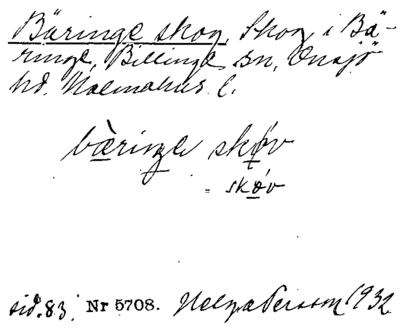 Bäringe skog, Skog i Bä-
ringe, Billinge sn, Onsjö
hd. Malmöhus l.
bæ̀ringe skǿv
= skǿv
sid. 83. Nr 5708. Helge Persson 1932